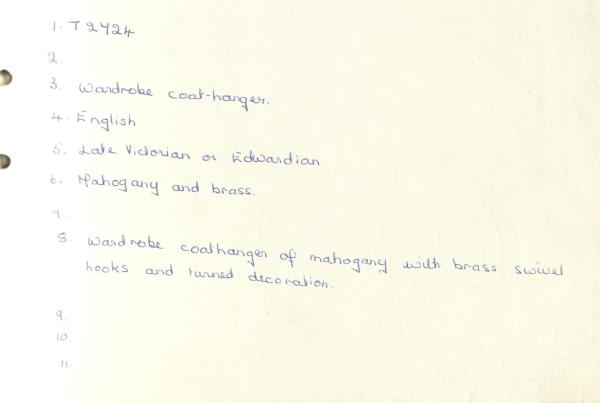 1. T 2424
2.
3. Wardrobe coat-hanger.
4. English
5. Late Victorian or Edwardian
6. Mahogany and brass.
7.
8. Wardrobe coathanger of mahogany with brass swivel
hooks and turned decoration.
9.
10.
11.